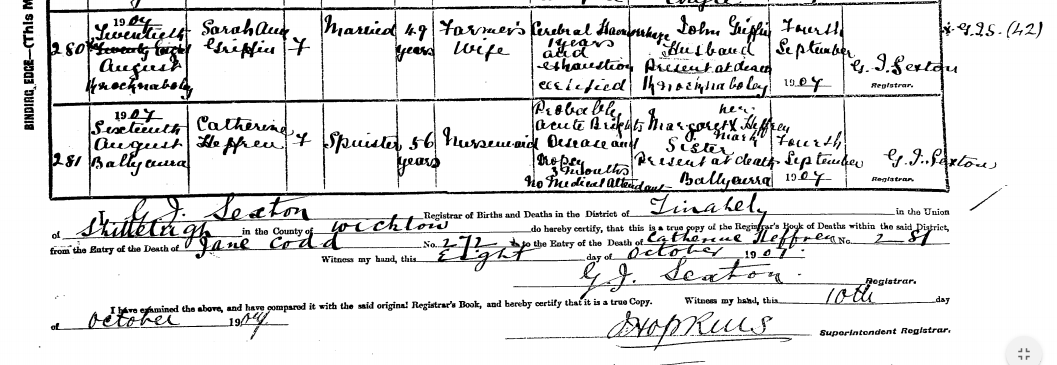 BINDING EDGE—(This M
280
1907
Twentieth
Twenty eight
August
Knocknaboley
Sarah Ann
Griffin
F
Married
49
years
Farmer's
Wife
Cerebral Haemorrhage
years
and
exhaustion
certified
John Griffin
Husband
Present at death
Knocknaboley
Fourth
September
1907
G. J. Sexton
Registrar.
G.J.S. (42)
281
1907
Sixteenth
August
Ballycurra
Catherine
Heffren
F
Spinster
56
years
Nursemaid
Probably
acute Brights
Disease and
Dropsy
3 months
No Medical Attendant
her
Margaret X Heffrey
mark
Sister
Present at death
Ballycurra
Fourth
September
1907
G. J. Sexton
Registrar.
I, G. J. Sexton Registrar of Births and Deaths in the District of Tinahely in the Union
of Shillelagh in the County of Wicklow do hereby certify, that this is a true copy of the Registrar's Book of Deaths within the said District,
from the Entry of the Death of Jane Codd No. 272 to the Entry of the Death of Catherine Heffren No. 281
Witness my hand, this Eight day of October 1907.
G. J. Sexton.
Registrar.
I have examined the above, and have compared it with the said original Registrar's Book, and hereby certify that it is a true Copy. Witness my hand, this 10th day
of October 1907
J Hopkins
Superintendent Registrar.